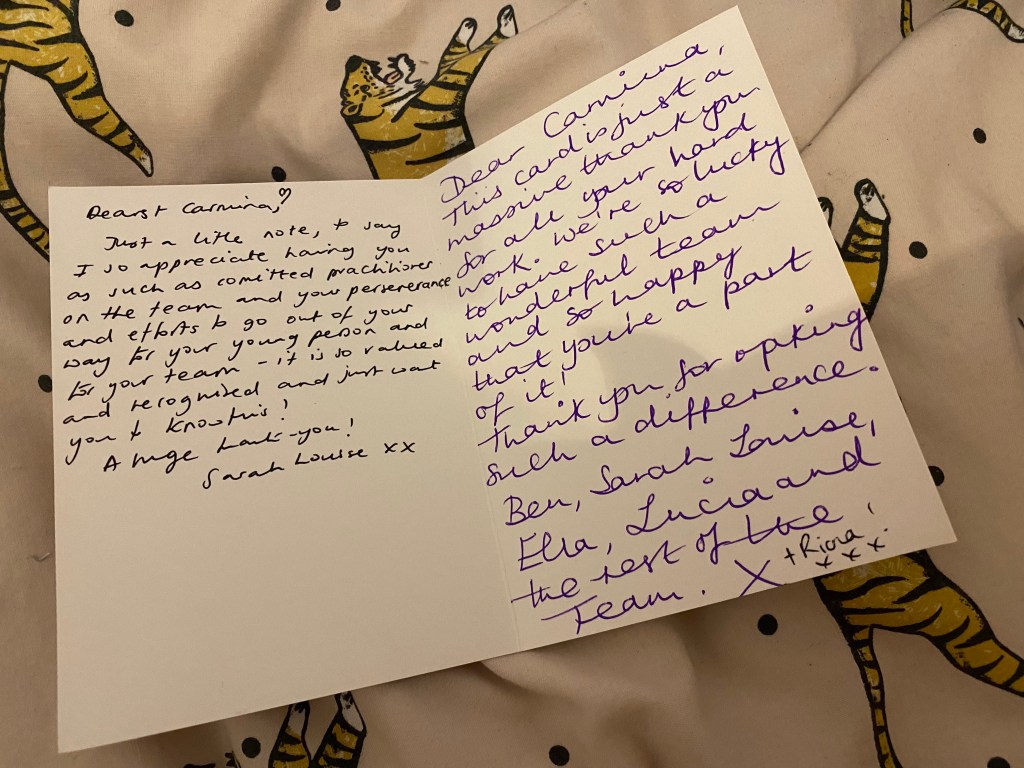 Dearst Carmina, ♡
Just a little note, to say
I so appreciate having you
as such as comitted practitioner
on the team and your perseverance
and efforts to go out of your
way for your young person and
for your team - it is so valued
and recognised and just want
you to know this!
A huge thank-you!
Sarah Louise xx
Dear Carmina,
This card is just a
massive thank you
for all your hard
work. We're so lucky
to have such a
wonderful team
and so happy
that you're a part
of it!
Thank you for making
such a difference.
Ben, Sarah Louise,
Ella, Lucia and
the rest of the
Team. X
+ Riona!
x x x